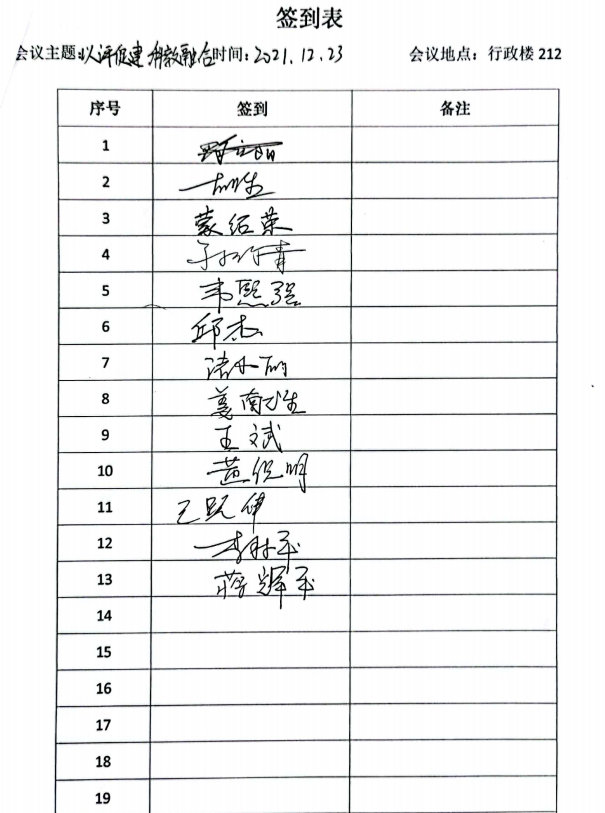 签到表
会议主题:以评促建 科教融合 时间:2021.12.23 会议地点:行政楼 212
序号 签到 备注
1
2
3 蒙绍荣
4
5 韦熙强
6 邱杰
7
8 姜南
9 王斌
10 黄 明
11 王跃伟
12 李林军
13 蒋辉军
14
15
16
17
18
19